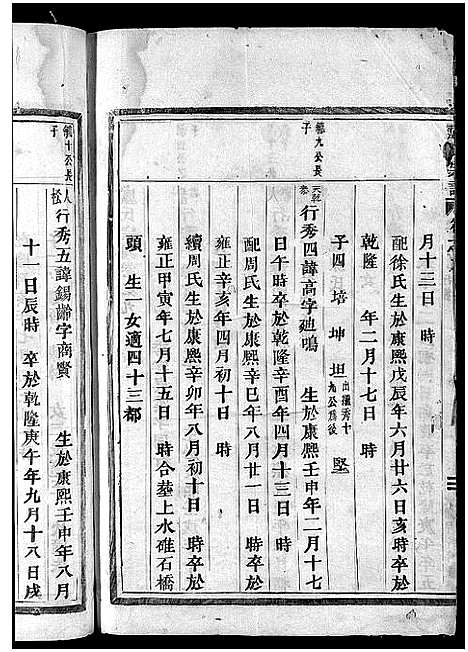 月十三日　時
配徐氏生於康熙戊辰年六月廿六日亥時卒於
乾隆　年二月十七日　時
子四　培　坤　坦出繼秀十九公爲後　堅
龍九公長子
行秀四諱高字廸鳴　生於康熙壬申年二月十七
日午時卒於乾隆辛酉年四月十三日　時
配周氏生於康熙辛巳年八月廿一日　時卒於
雍正辛亥年四月初十日　時
續周氏生於康熙辛卯年八月初十日　時卒於
雍正甲寅年七月十五日　時合墓上水碓石橋
頭　生一女適四十三都
十公長子
行秀五諱錫齡字商賢　生於康熙壬申年八月
十一日辰時　卒於乾隆庚午年九月十八日戌